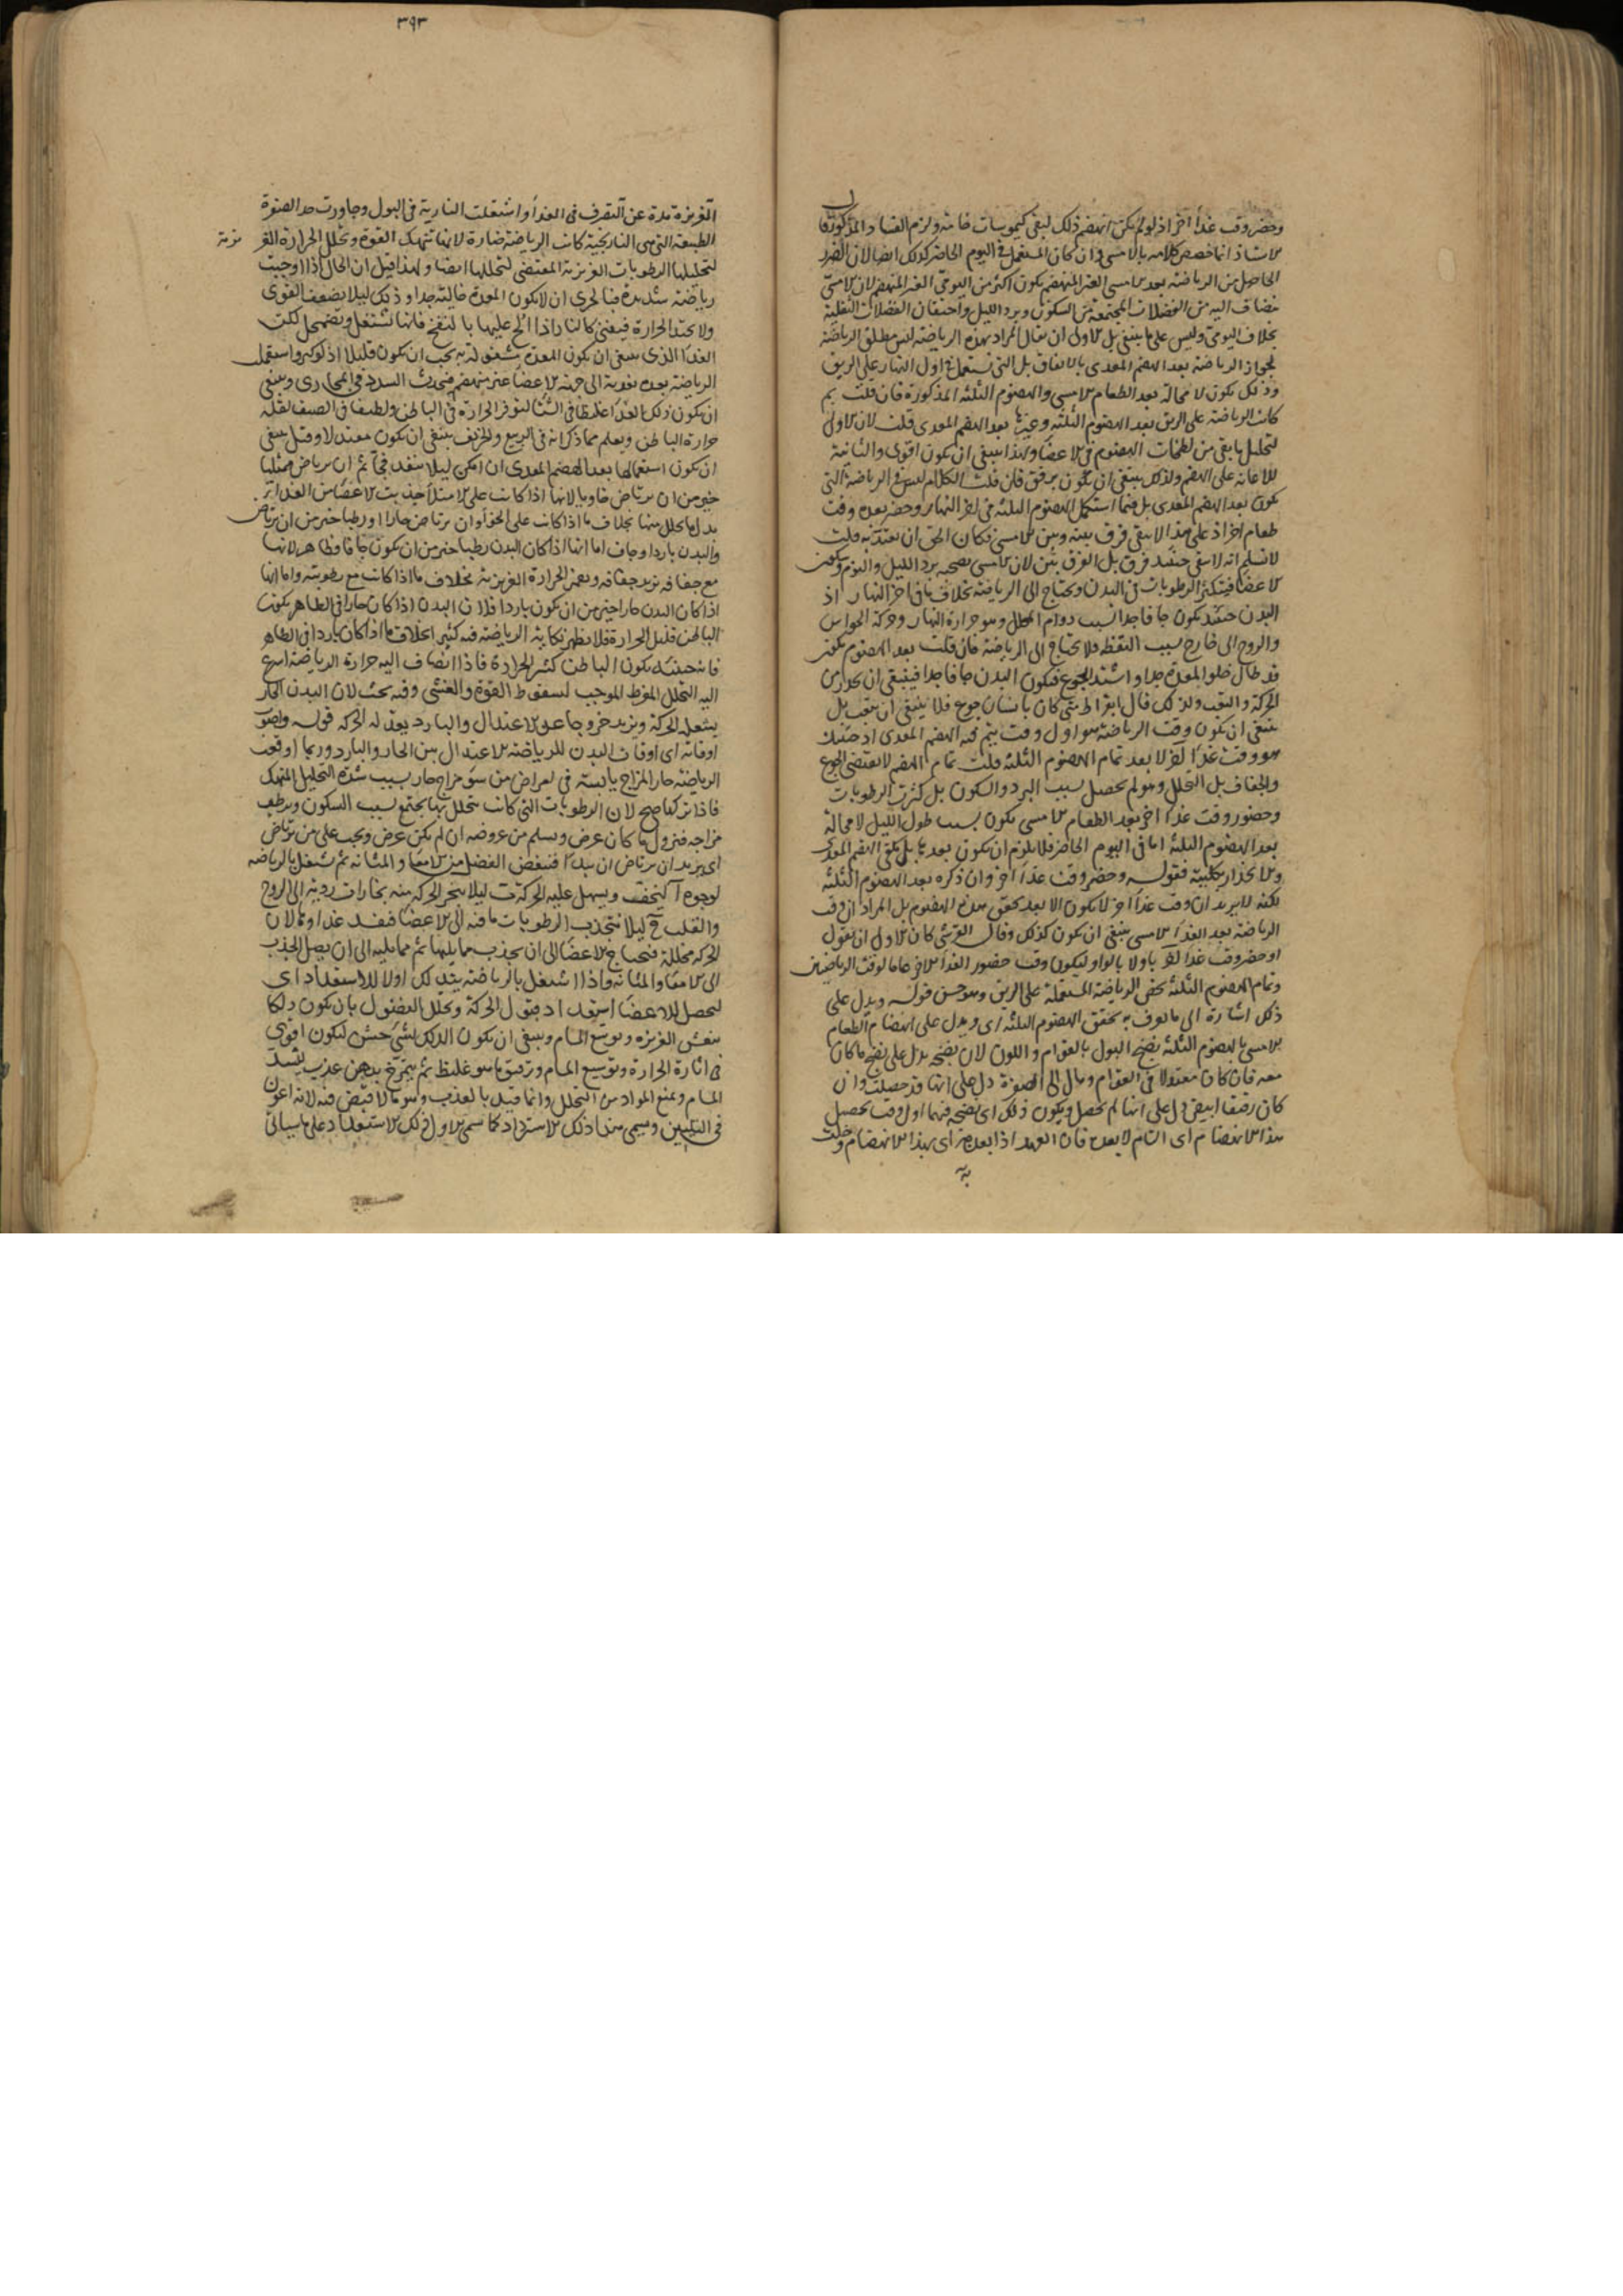 وحضر وقت غذاء آخر اذ لو لم يكن انهضم ذلك لبقى كيموسات خامة ولزم الفساد المذكور قال
الاستاذ انما خصص كلامه بالامسى وان كان المستعمل فى اليوم الحاضر كذلك ايضا لان الضرر
الحاصل من الرياضة بعد الامسى الغير المنهضم يكون اكثر من اليومى الغير المنهضم لان الامسى
مضاف اليه من الفضلات المجتمعة من السكون وبرد الليل واحتقان الفضلات الثقلية
بخلاف اليومى وليس على ما ينبغى بل الاولى ان يقال المراد بهذه الرياضة ليس مطلق الرياضة
لجواز الرياضة بعد الهضم المعدى بالاتفاق بل التى تستعمل فى اول النهار على الريق
وذلك يكون لا محالة بعد الطعام الامسى والهضوم الثلثة المذكورة فان قلت لم
كانت الرياضة على الريق بعد الهضوم الثلثة وغيرها بعد الهضم المعدى قلت لان الاولى
لتحليل ما بقى من لطخات الهضوم فى الاعضاء ولهذا ينبغى ان يكون اقوى والثانية
للاعانة على الهضم ولذلك ينبغى ان يكون برفق فان قلت الكلام ليس فى الرياضة التى
يكون بعد الهضم المعدى بل فيما استكمل الهضوم الثلثة فى اخر النهار وحضر بعده وقت
طعام اخر اذ على هذا لا يبقى فرق بينه وبين الامسى فكان الحق ان يعتد به قلت
لا نسلم انه لا يبقى حينئذ فرق بل الفرق بين لان الامسى يصحبه برد الليل والنوم وسكون
الاعضا فيتكثر الرطوبات فى البدن ويحتاج الى الرياضة بخلاف ما فى اخر النهار اذ
البدن حينئذ يكون جافا جدا بسبب دوام المحلل وهو حرارة النهار وحركة الحواس
والروح الى خارج بسبب اليقظة فلا يحتاج الى الرياضة فان قلت بعد الهضوم يكون
قد طال خلو المعدة جدا واشتد الجوع فيكون البدن جافا جدا فينبغى ان يحذر من
الحركة والتعب ولذلك قال ابقراط متى كان بانسان جوع فلا ينبغى ان يتعب بل
ينبغى ان يكون وقت الرياضة هو اول وقت يتم فيه الهضم المعدى اذ حينئذ
هو وقت غذاء اخر لا بعد تمام الهضوم الثلثة قلت تمام الهضم لا يقتضى الجوع
والجفاف بل التحلل وهو لم يحصل بسبب البرد والسكون بل كثرت الرطوبات
وحضور وقت غذاء اخر بعد الطعام الامسى يكون بسبب طول الليل لا محالة
بعد الهضوم الثلثة اما فى اليوم الحاضر فلا يلزم ان يكون بعدها بل يكفى الهضم المعدى
والانحدار بكليته فقوله وحضر وقت غذاء اخر وان ذكره بعد الهضوم الثلثة
لكنه لا يريد ان وقت غذاء اخر لا يكون الا بعد تحقق هذه الهضوم بل المراد ان وقت
الرياضة بعد الغذاء الامسى ينبغى ان يكون كذلك وقال القرشى كان الاولى ان يقول
او حضر وقت غذاء اخر باو لا بالواو ليكون وقت حضور الغذاء الاخر عاما لوقت الرياضتين
وتمام الهضوم الثلثة يخص الرياضة المستعملة على الريق وهو حسن قوله ويدل على
ذلك اشارة الى ما يعرف به تحقق الهضوم الثلثة اى ويدل على انهضام الطعام
الامسى بالهضوم الثلثة نضج البول بالقوام واللون لان نضجه يدل على نضج ما كان
معه فان كان معتدلا فى القوام ومال الى الصفرة دل على انها قد حصلت وان
كان رقيقا ابيض دل على انها لم تحصل ويكون ذلك اى نضجه فيهما اول وقت تحصيل
هذا الانهضام اى التام لا بعده فان العهد اذا بعد به اى بهذا الانهضام وخلت
به
٣٩٣
الغريزة مدة عن التصرف فى الغذاء واشتعلت النارية فى البول وجاوزت حد الصفرة
الطبيعية التى هى النارنجية كانت الرياضة ضارة لانها تنهك القوة وتحلل الحرارة الغر
يزية
لتحليلها الرطوبات الغريزية المقتضى لتحللها ايضا ولهذا قيل ان الحال اذا اوجبت
رياضة شديدة فبالحرى ان لا يكون المعدة خالية جدا وذلك ليلا يضعف القوى
ولا يحتد الحرارة فيفنى كالنار اذا الح عليها بالنفخ فانها تشتعل وتضمحل لكن
الغذاء الذى ينبغى ان يكون المعدة مشغولة به يجب ان يكون قليلا اذ لو كبر واستعمل
الرياضة بعده نفذ به الى جهة الاعضاء غير منهضم فيحدث السدد فى المجارى وينبغى
ان يكون ذلك الغذاء غليظا فى الشتا لتوفر الحرارة فى الباطن ولطيفا فى الصيف لقلة
حرارة الباطن ويعلم مما ذكر انه فى الربيع والخريف ينبغى ان يكون معتدلا وقيل ينبغى
ان يكون استعمالها بعد الهضم المعدى ان امكن ليلا ينفذ فجا ثم ان يرتاض ممتليا
خير من ان يرتاض خاويا لانها اذا كانت على الامتلاء جذبت الاعضاء من الغذاء اكثر
بدل ما يحلل منها بخلاف ما اذا كانت على الخواء وان يرتاض حارا او رطبا خير من ان يرتاض
والبدن بارد او جاف اما انها اذا كان البدن رطبا خير من ان يكون جافا فظاهر لانها
مع جفافه تزيد جفافه ويضر الحرارة الغريزية بخلاف ما اذا كانت مع رطوبته واما انها
اذا كان البدن حارا خير من ان يكون باردا فلان البدن اذا كان حارا فى الظاهر يكون
الباطن قليل الحرارة فلا يظهر نكاية الرياضة فيه كثيرا بخلاف ما اذا كان باردا فى الظاهر
فانه حينئذ يكون الباطن كثير الحرارة فاذا انضاف اليه حرارة الرياضة اسرع
اليه التحلل المفرط الموجب لسقوط القوة والغشى وفيه بحث لان البدن الحار
يشعله الحركة ويزيد خروجا عن الاعتدال والبارد يعدله الحركة قوله واصوب
اوقاته اى اوقات البدن للرياضة الاعتدال بين الحار والبارد وربما اوقعت
الرياضة حار المزاج يابسه فى امراض من سوء مزاج حار بسبب شدة التحليل المنهك
فاذا تركها صح لان الرطوبات التى كانت تتحلل بها يجتمع بسبب السكون ويرطب
مزاجه فيزول ما كان عرض ويسلم من عروضه ان لم يكن عرض ويجب على من يرتاض
اى يريد ان يرتاض ان يبدأ فينفض الفضل من الامعاء والمثانة ثم يشتغل بالرياضة
لوجوه آ ليخف ويسهل عليه الحركة ب ليلا يبخر الحركة منه بخارات ردية الى الروح
والقلب ج ليلا ينجذب الرطوبات ما فيه الى الاعضا فيفسد غذاؤها لان
الحركة محللة فيحتاج الاعضا الى ان يجذب مما يليها ثم مما يليه الى ان يصل الجذب
الى الامعاء والمثانة واذا اشتغل بالرياضة يتدلك اولا للاستعداد اى
ليحصل للاعضا استعداد قبول الحركة وتحلل الفضول بان يكون دلكا
ينعش الغريزة ويوسع المسام وينبغى ان يكون الدلك بشئ خشن ليكون اقوى
فى اثارة الحرارة وتوسيع المسام وترقيق ما هو غليظ ثم يتمرخ بدهن عذب ليشد
المسام ويمنع المواد من التحلل وانما قيد بالعذب وهو ما لا قبض فيه لانه اعون
فى التليين ويسمى هذا ذلك الاسترداد كما سمى الاول دلك الاستعداد على ما سيأتى